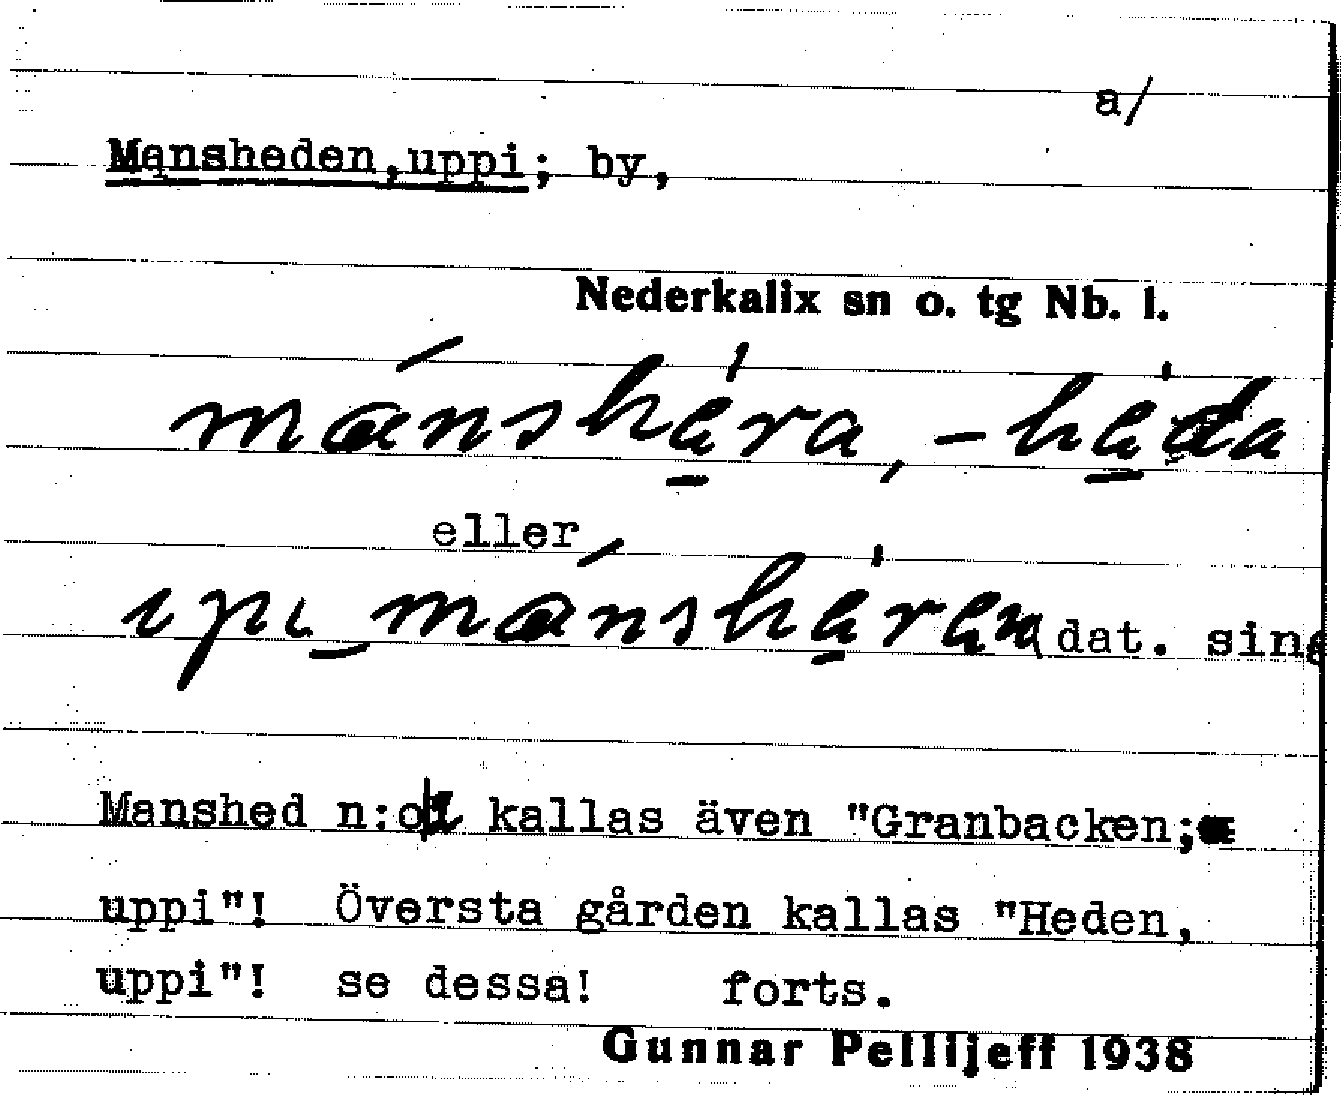 a/
Mansheden,uppi; by,
Nederkalix sn o. tg Nb. l.
mánshera, -heda
eller
ipi mánsheren dat. sing
Manshed n:o1 kallas även "Granbacken;
uppi"! Översta gården kallas "Heden,
uppi"! se dessa! forts.
Gunnar Pellijeff 1938